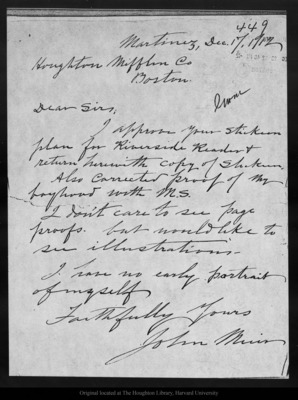 449
Martinez, Dec. 17, 1912
Houghton Mifflin Co
Boston.
Dear Sirs,
I approve your Stickeen
plan for Riverside Reader &
return herewith copy of Stickeen.
Also corrected proof of My
boyhood with M.S.
I don't care to see page
proofs. but would like to
see illustrations-
I have no early portrait
of myself
Faithfully Yours
John Muir
Original located at The Houghton Library, Harvard University